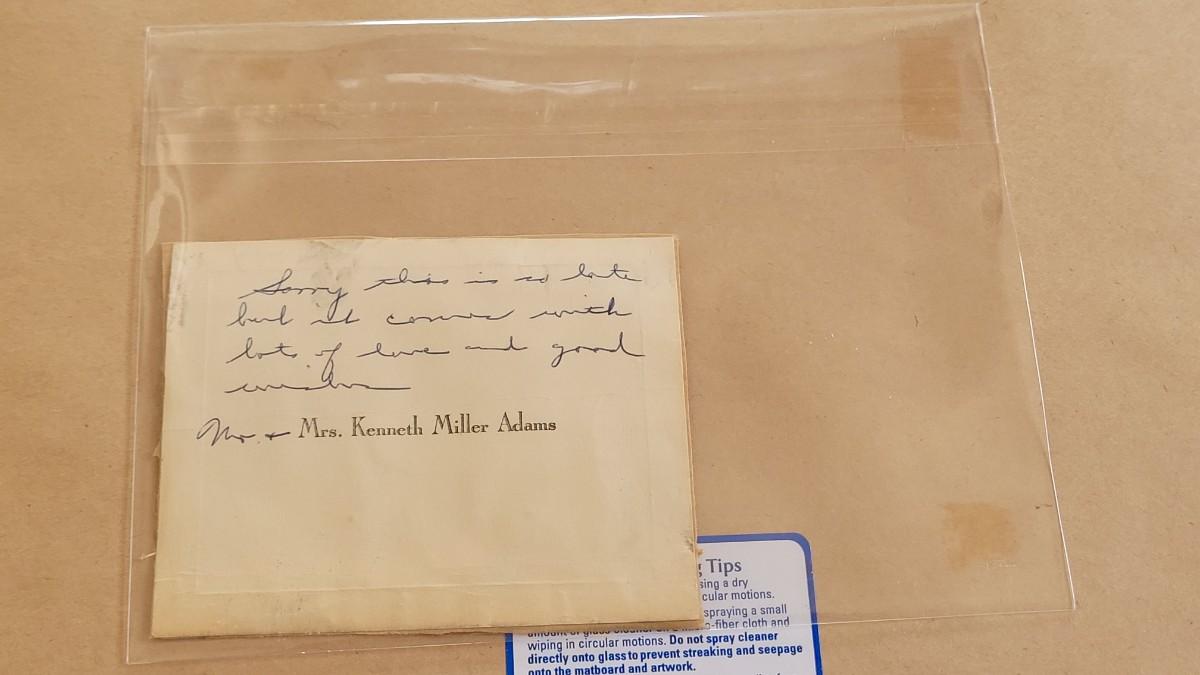 Sorry this is so late
but it comes with
lots of love and good
wishes
Mr. + Mrs. Kenneth Miller Adams
Tips
sing a dry
cular motions.
spraying a small
amount of glass cleaner on a micro-fiber cloth and
wiping in circular motions. Do not spray cleaner
directly onto glass to prevent streaking and seepage
onto the matboard and artwork.